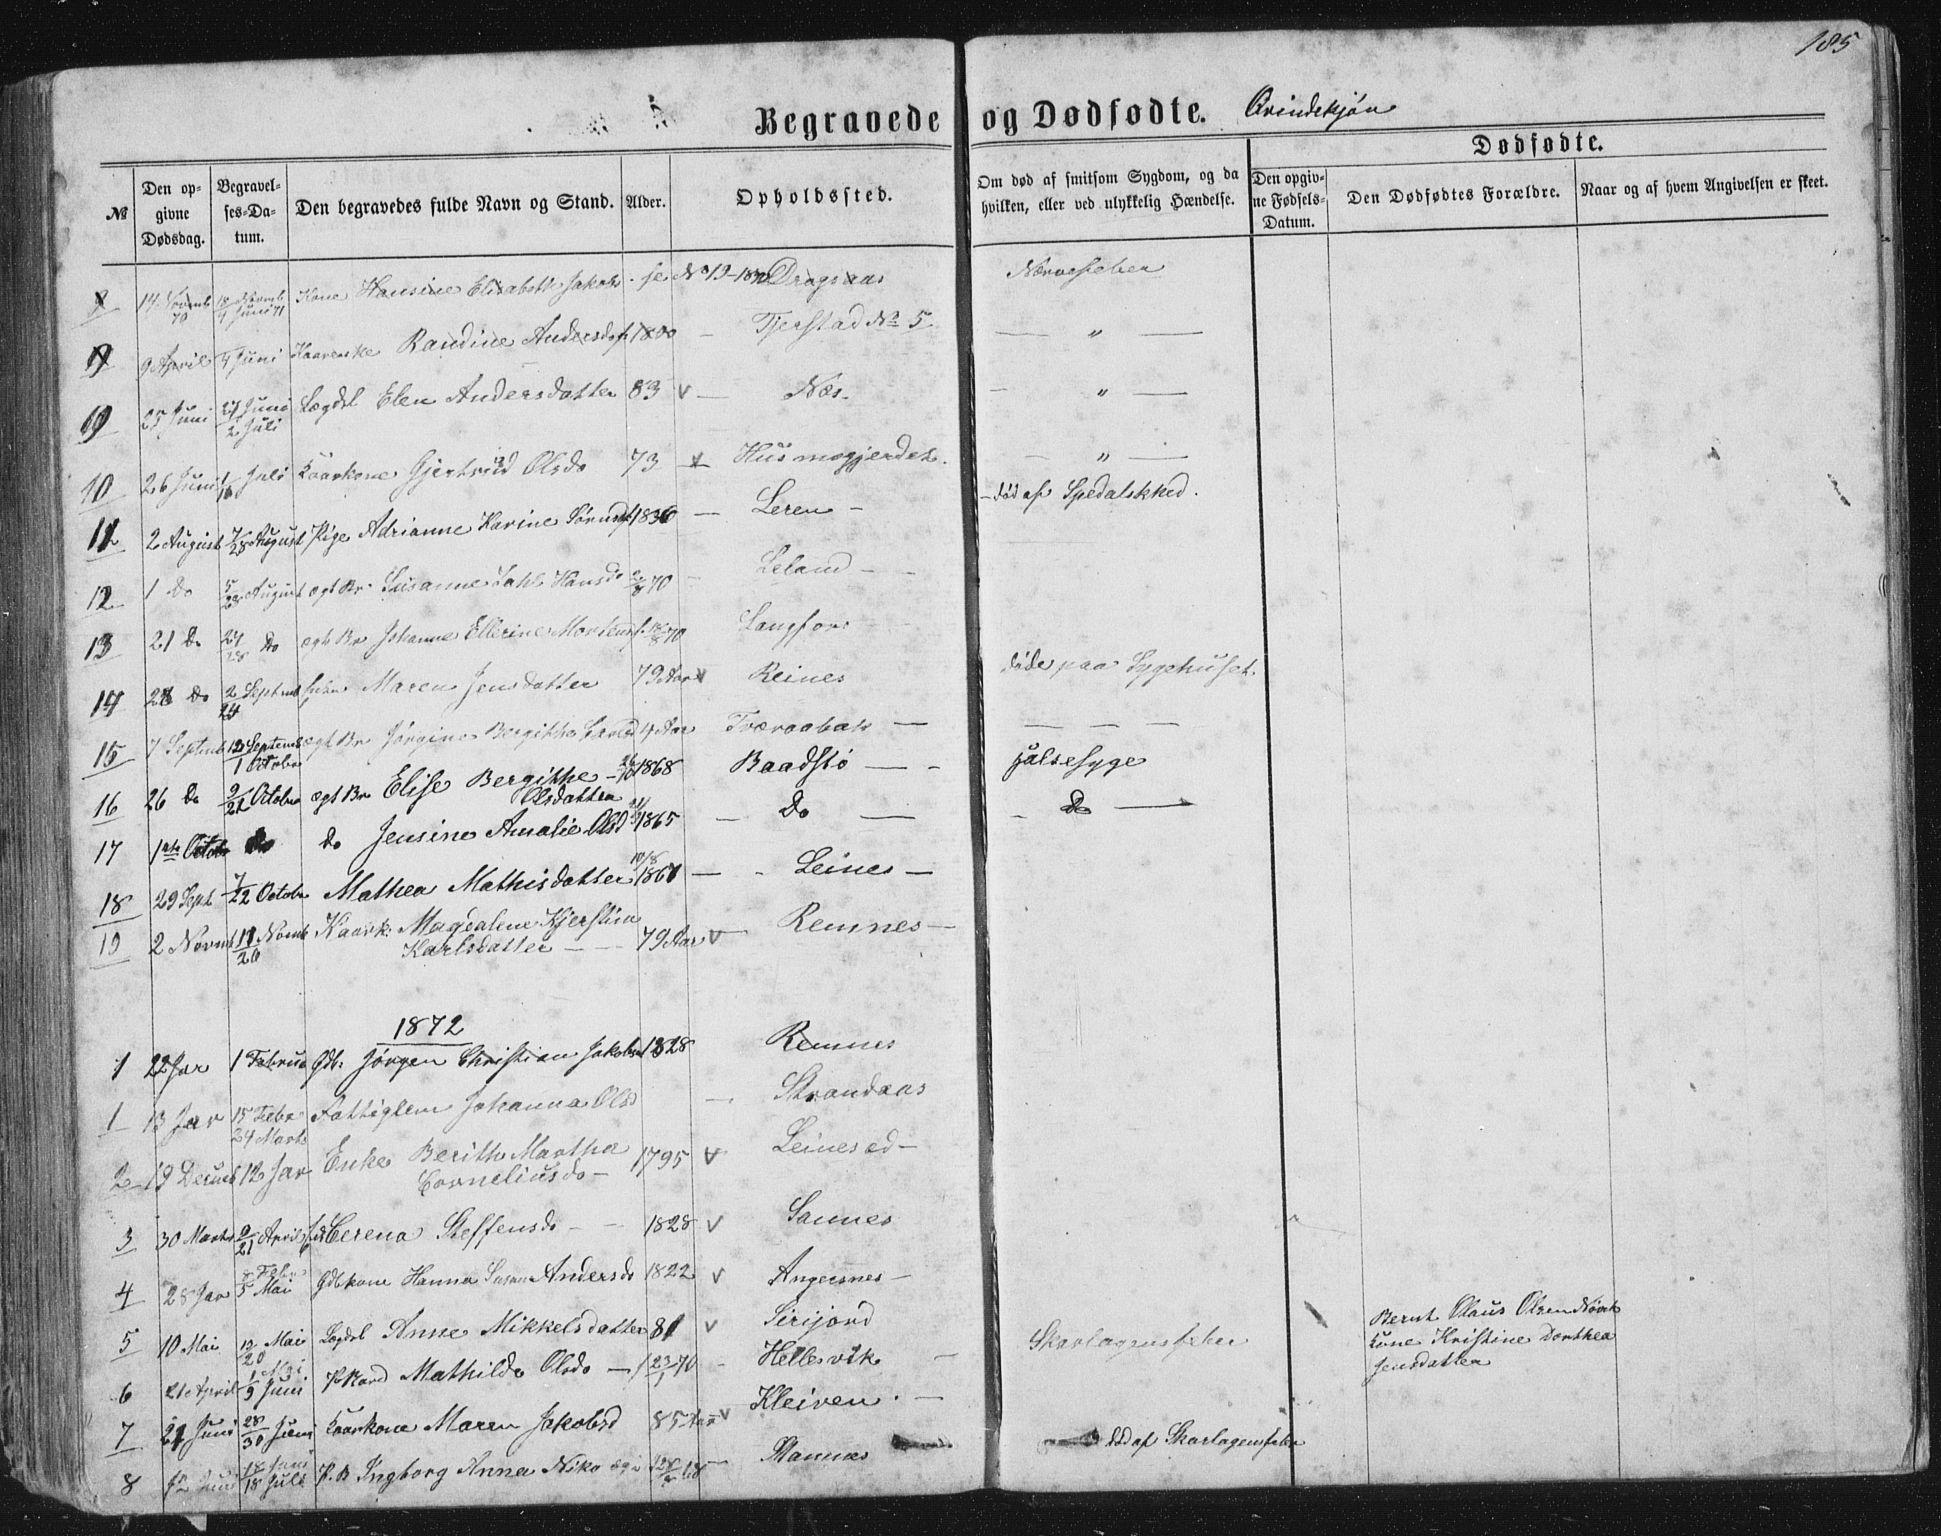 185
Begravede og Dødfødte. Qvindekjøn
Dødfødte.
№
Den opgivne Dødsdag.
Begravelses-Datum.
Den begravedes fulde Navn og Stand.
Alder.
Opholdssted.
Om død af smitsom Sygdom, og da hvilken, eller ved ulykkelig Hændelse.
Den opgivne Fødsels-Datum.
Den Dødfødtes Forældre.
Naar og af hvem Angivelsen er skeet.
14 Novemb 70 Kone Hansine Elisabeth Jakobs se No 19-1870 Dragsaas Nervefeber
9 9 April 4 Juni Kaarenke Randine Andersd f 1800 — Tjerstad No 5 — " —
10 25 Juni 27 Juni 2 Juli Lægdsl Elen Andersdatter 83 v — Næs. — " —
10 26 Juni 1/16 Juli Kaarkone Gjertrud Olsdr 73 — Husmogjerdet. — " —
11 2 August 7/28 August Pige Adrianne Karine Sørnsd f 1836 — Leren — død af Spedalskhed.
12 1 Do 5/28 August ægt Br. Susanne Dahl Hansd 70 — Leland — —
13 21 Do 27/28 Do ægt Br Johanne Ellerine Mortensd f. 18/8 70 Langfors
14 28 Do 2/24 Septemb Maren Jensdatter 79 Aar v Reines døde paa Sygehuset
15 7 Septemb 12 Septemb 1 Octobr ægt Br Jørgine Bergitte 4 Aar Tveraabak — — — —
16 26 Do 9/21 Octobr ægt Br Elise Bergitte Olsdatter 1868 Baadstø — - halsesyge
17 1ste Octobr Do do Jensine Amalie Olsd 1865 — Do — - Do —
18 29 Sept 7/22 Octobr Mathea Mathisdatter 10/8 1867 — - Leines —
19 2 Novmb 11/26 Novmb Kaark: Magdalene Kjerstina Karlsdatter — 79 Aar v Remnes —
1872
1 22 Jar 1 Februa Gdb. Jørgen Christian Jakobsen 1828 Remnes
1 13 Jar 15 Febr 24 Marts Fattiglem Johanna Olsd — Strandaas
2 19 Decmb 12 Jar Enke Berith Martha Corneliusdr — 1795 v Leinesed —
3 30 Marts 9/21 April Cerena Steffensdr - — 1828 v Sannes
4 28 Jar Febr 5 Mai Gdbkone Hanna Susan Andersdr 1822 v Angersnes —
5 10 Mai 12/20 Mai Lægdsl Anne Mikkelsdatter 81 v Seiijord
Bernt Olaus Olsen Növik
Kone Kristine Dorthea
Jensdatter
6 21 April 1 Mai 9 Juni Mathilde Olsdr — f 23/1 70 - Hellesvik — Skarlagensfeber
7 21 Juni 28/30 Juni Kaarkone Maren Jakobsd 85 Aar v Kleiven. —
8 18/18 Juli P. B Ingborg Anna 68 — Mannes død af Skarlagensfeber